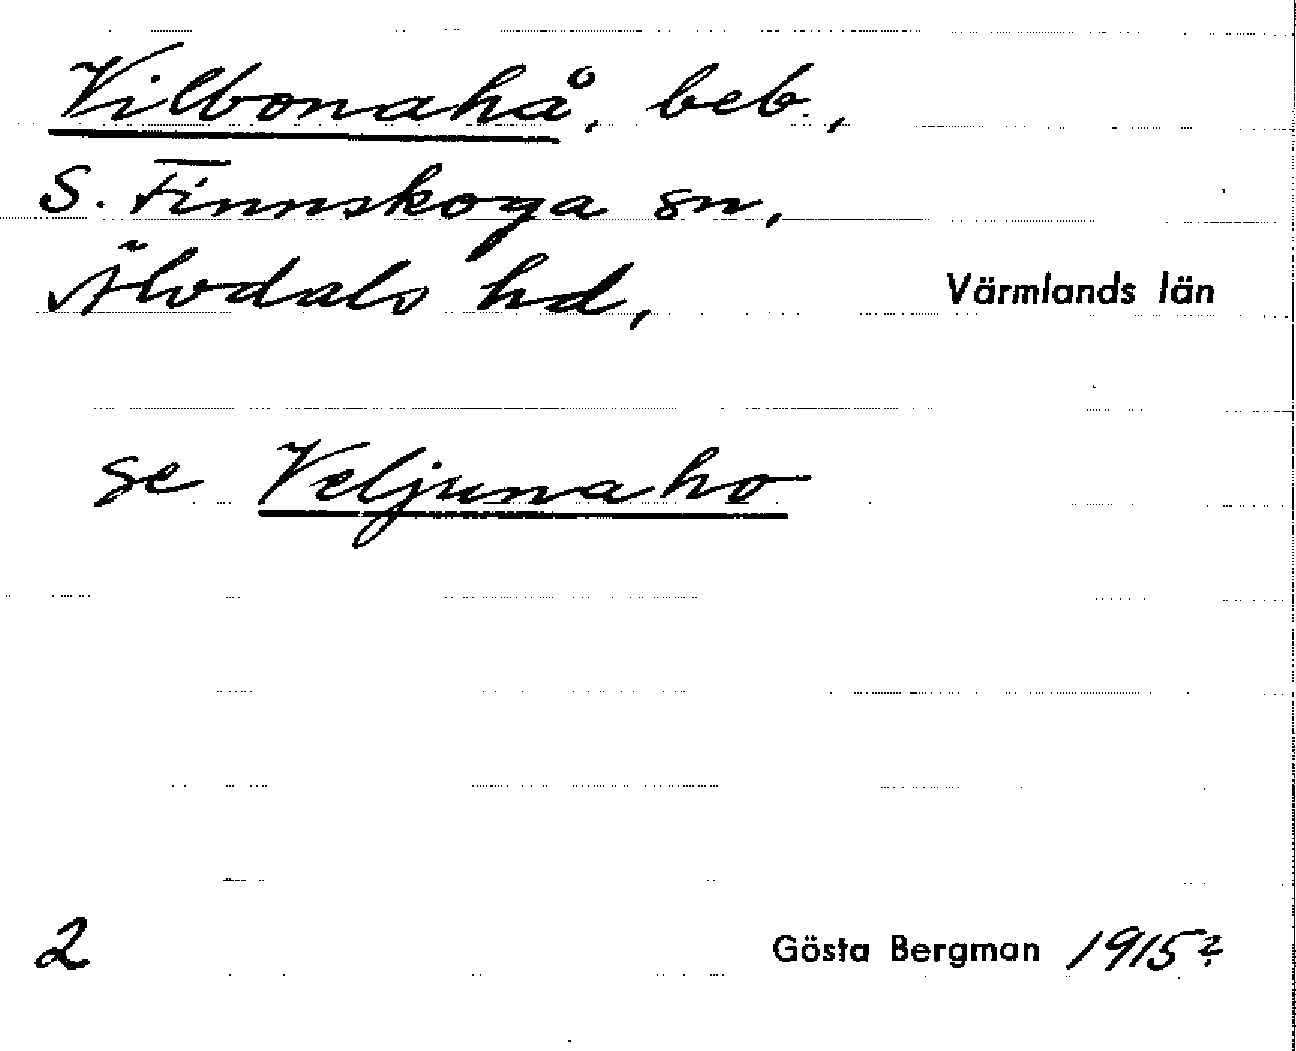 Vilbonahå, beb.,
S. Finnskoga sn,
Älvdals hd, Värmlands län
se Veljunaho
2 Gösta Bergman 1915?